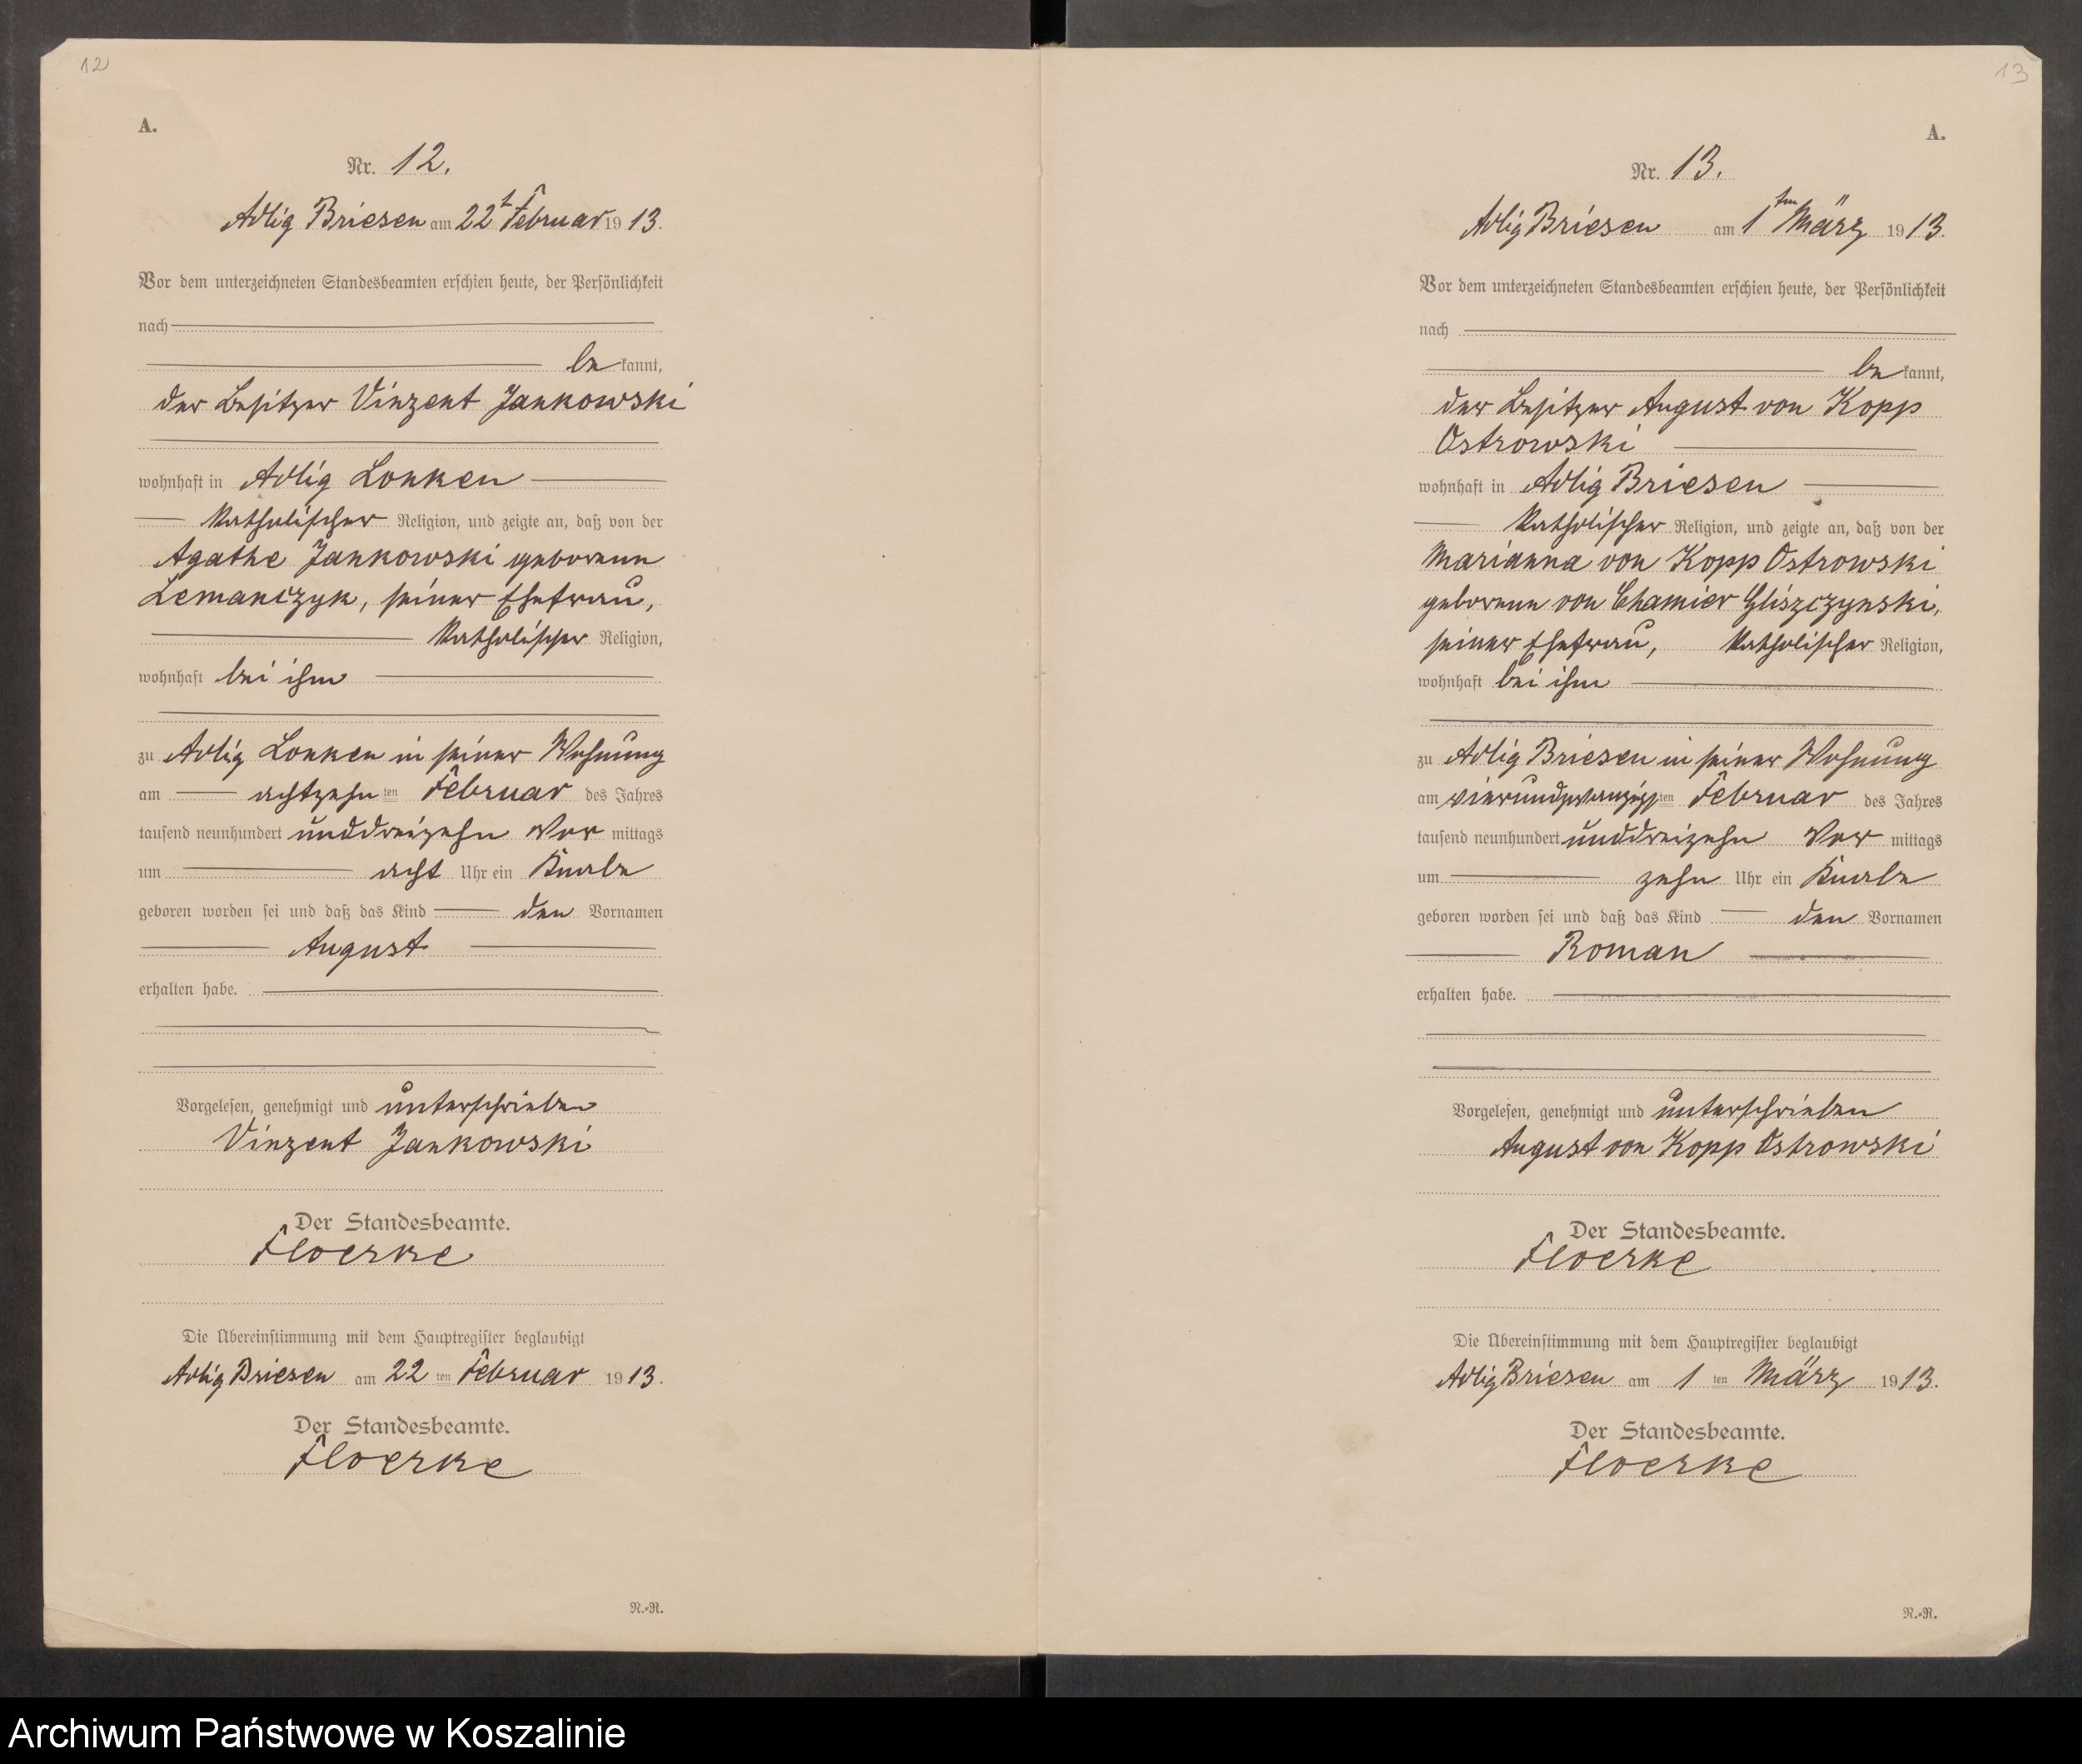 12
A.
Nr. 12.
Adlig Briesen am 22t Februar 1913.
Vor dem unterzeichneten Standesbeamten erschien heute, der Persönlichkeit
nach
be kannt,
der Besitzer Vinzent Jankowski
wohnhaft in Adlig Lonken
katholischer Religion, und zeigte an, daß von der
Agathe Jankowski geborenen
Lemanczyk, seiner Ehefrau,
katholischer Religion,
wohnhaft bei ihm
zu Adlig Lonken in seiner Wohnung
am achtzehn ten Februar des Jahres
tausend neunhundert unddreizehn Vor mittags
um acht Uhr ein Knabe
geboren worden sei und daß das Kind den Vornamen
August
erhalten habe.
Vorgelesen, genehmigt und unterschrieben
Vinzent Jankowski
Der Standesbeamte.
Floerke
Die Übereinstimmung mit dem Hauptregister beglaubigt
Adlig Briesen am 22 ten Februar 1913.
Der Standesbeamte.
Floerke
N.-R.
13
A.
Nr. 13.
Adlig Briesen am 1ten März 1913.
Vor dem unterzeichneten Standesbeamten erschien heute, der Persönlichkeit
nach
be kannt,
der Besitzer August von Kopp
Ostrowski
wohnhaft in Adlig Briesen
katholischer Religion, und zeigte an, daß von der
Marianna von Kopp Ostrowski
geborenen von Chamier Gliszczynski,
seiner Ehefrau, katholischer Religion,
wohnhaft bei ihm
zu Adlig Briesen in seiner Wohnung
am vierundzwanzigsten Februar des Jahres
tausend neunhundert unddreizehn Vor mittags
um zehn Uhr ein Knabe
geboren worden sei und daß das Kind den Vornamen
Roman
erhalten habe.
Vorgelesen, genehmigt und unterschrieben
August von Kopp Ostrowski
Der Standesbeamte.
Floerke
Die Übereinstimmung mit dem Hauptregister beglaubigt
Adlig Briesen am 1 ten März 1913.
Der Standesbeamte.
Floerke
N.-R.
Archiwum Państwowe w Koszalinie